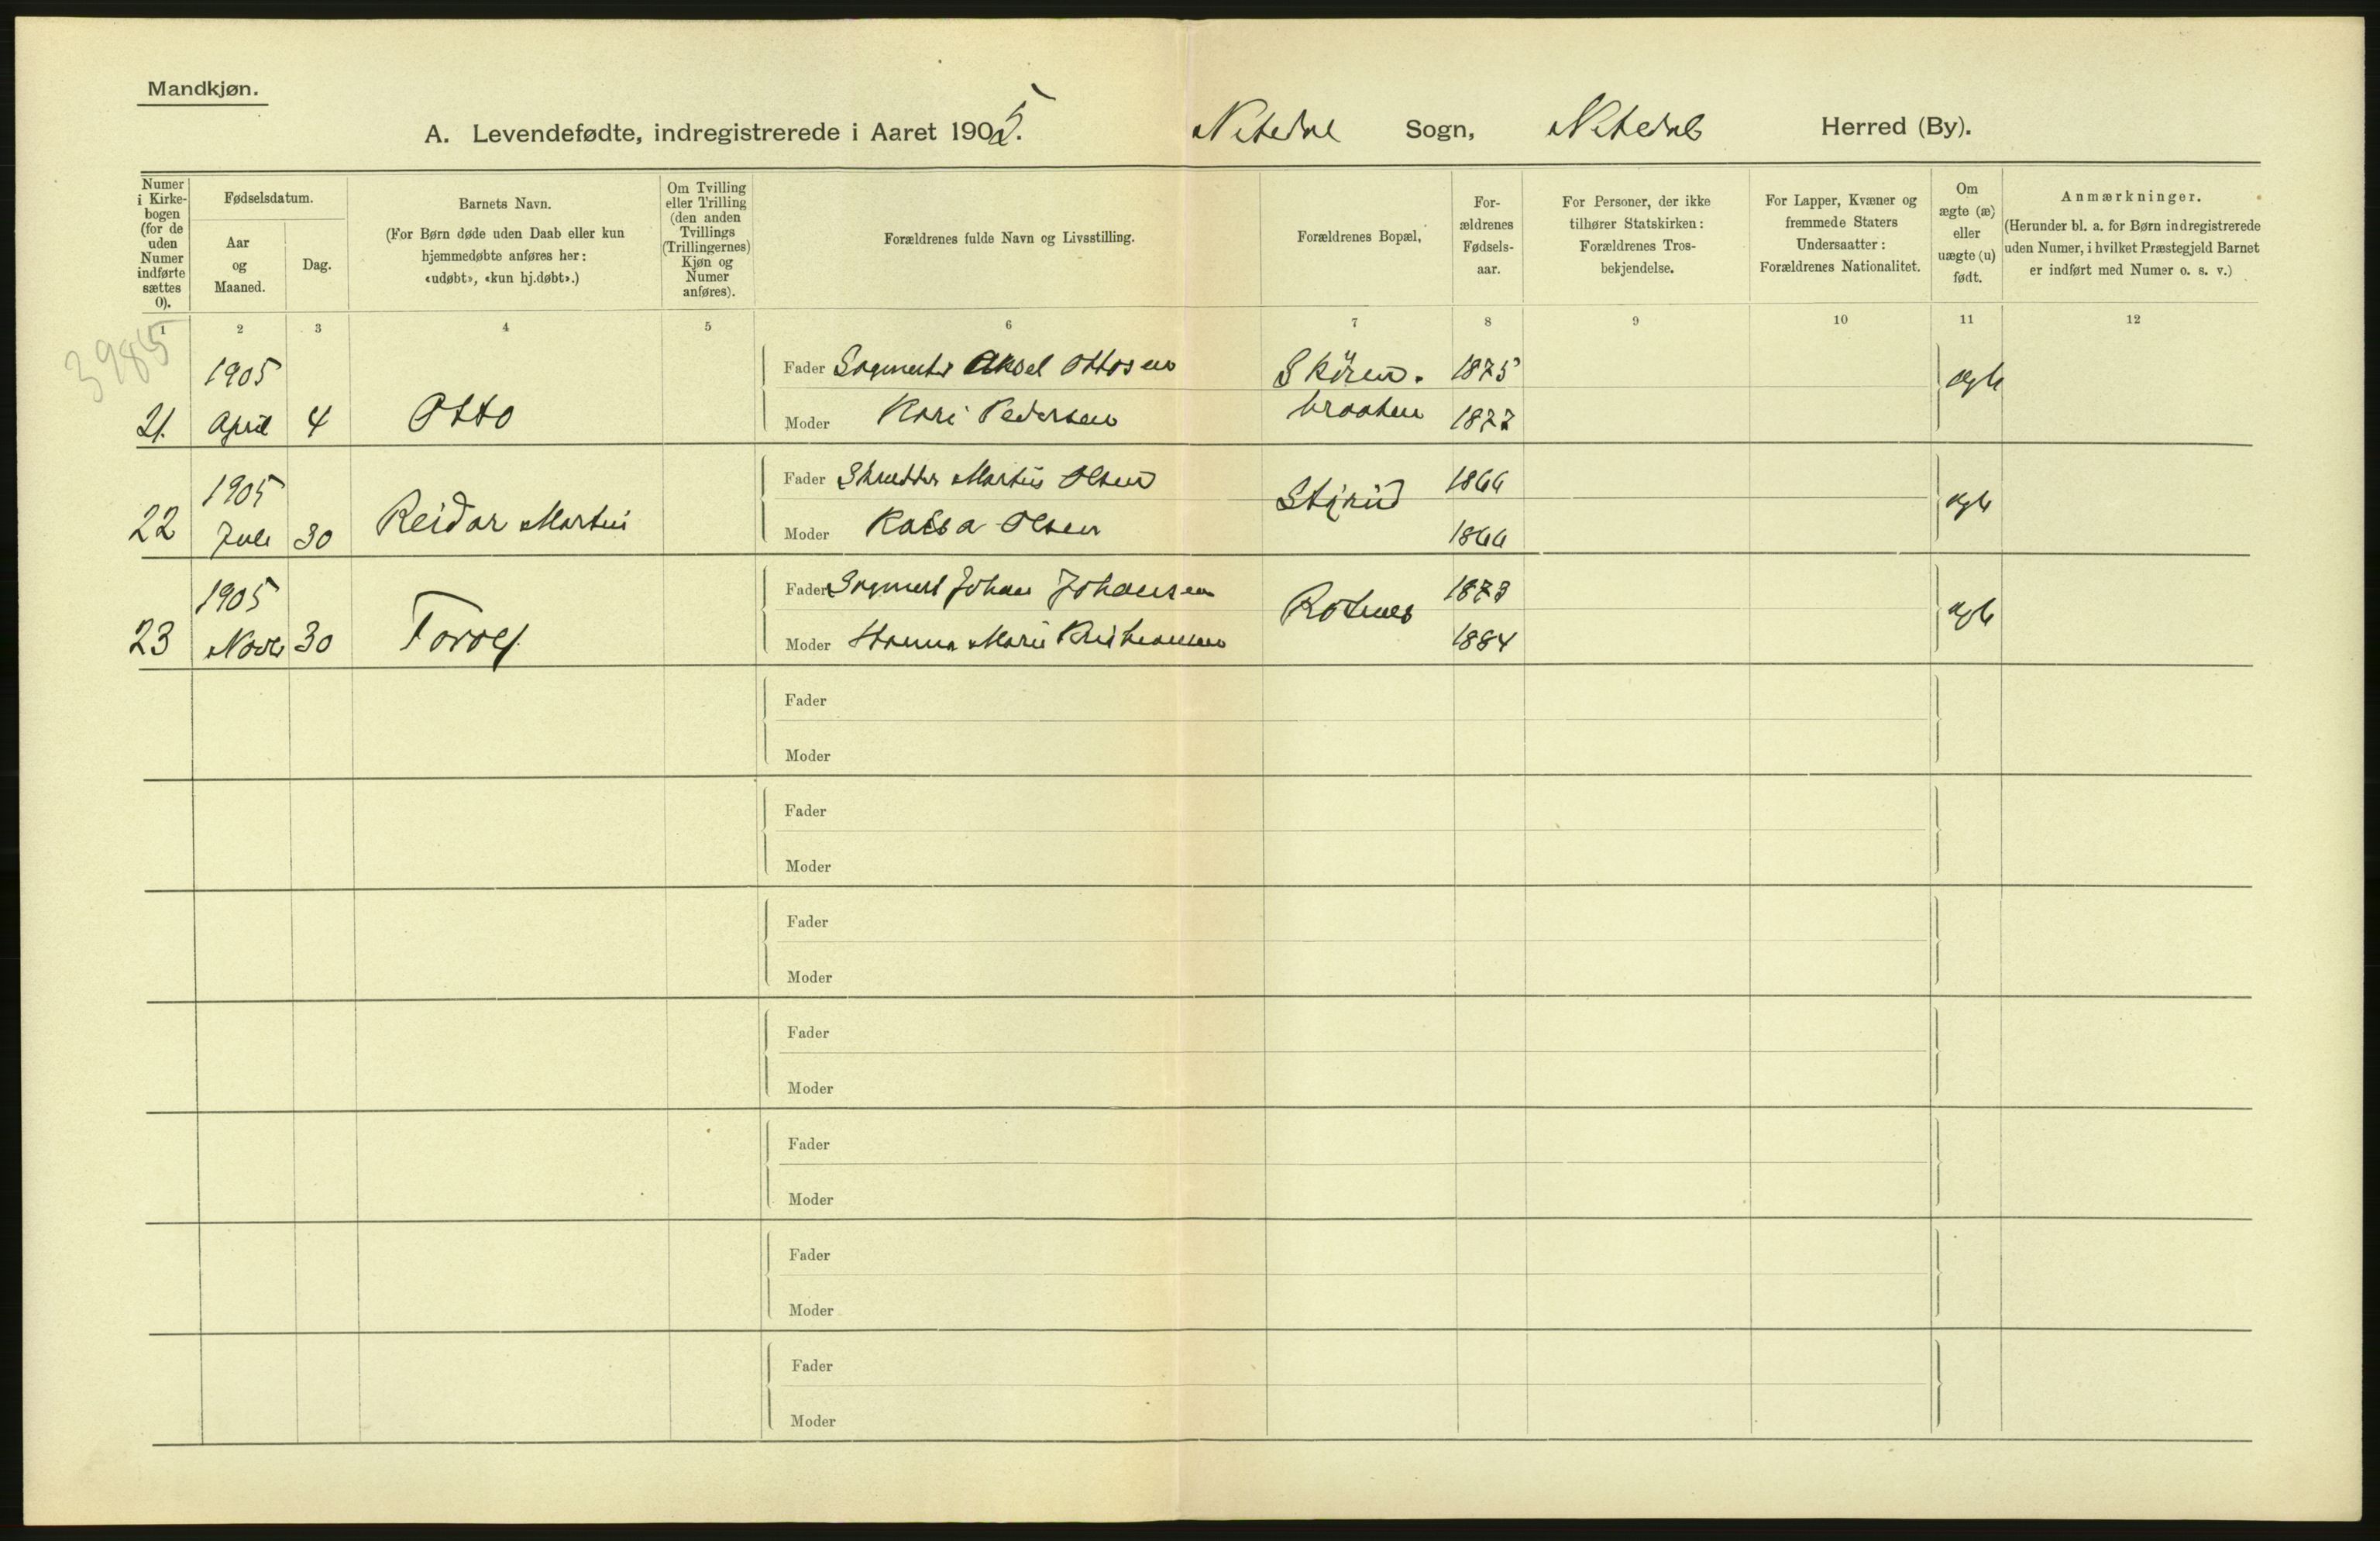 Mandkjøn.
A. Levendefødte, indregistrerede i Aaret 1905. Nitedal Sogn, Nitedal Herred (By).
Numer i Kirkebogen (for de uden Numer indførte sættes 0).
Fødselsdatum.
Aar og Maaned.
Dag.
Barnets Navn.
(For Børn døde uden Daab eller kun
hjemmedøbte anføres her:
«udøbt», «kun hj.døbt».)
Om Tvilling
eller Trilling
(den anden
Tvillings
(Trillingernes)
Kjøn og
Numer
anføres).
Forældrenes fulde Navn og Livsstilling.
Forældrenes Bopæl,
For-
ældrenes
Fødsels-
aar.
For Personer, der ikke
tilhører Statskirken:
Forældrenes Tros-
bekjendelse.
For Lapper, Kvæner og
fremmede Staters
Undersaatter:
Forældrenes Nationalitet.
Om
ægte (æ)
eller
uægte (u)
født.
Anmærkninger.
(Herunder bl. a. for Børn indregistrerede
uden Numer, i hvilket Præstegjeld Barnet
er indført med Numer o. s. v.)
1 2 3 4 5 6 7 8 9 10 11 12
3985
1905 Fader Sagmester Aksel Ottosen Skøien. 1875 ægte
21. April 4 Otto Moder Kari Pedersen braaten 1877
1905 Fader Skrædder Martius Olsen 1866
22 Juli 30 Reidar Martin Moder Olsen 1866 ægte
1905 Fader Sagmest Johan Johansen Rotnes 1873
23 Novbr 30 Torolf Moder Hanna Marie Kristiansen 1884 ægte
Fader
Moder
Fader
Moder
Fader
Moder
Fader
Moder
Fader
Moder
Fader
Moder
Fader
Moder